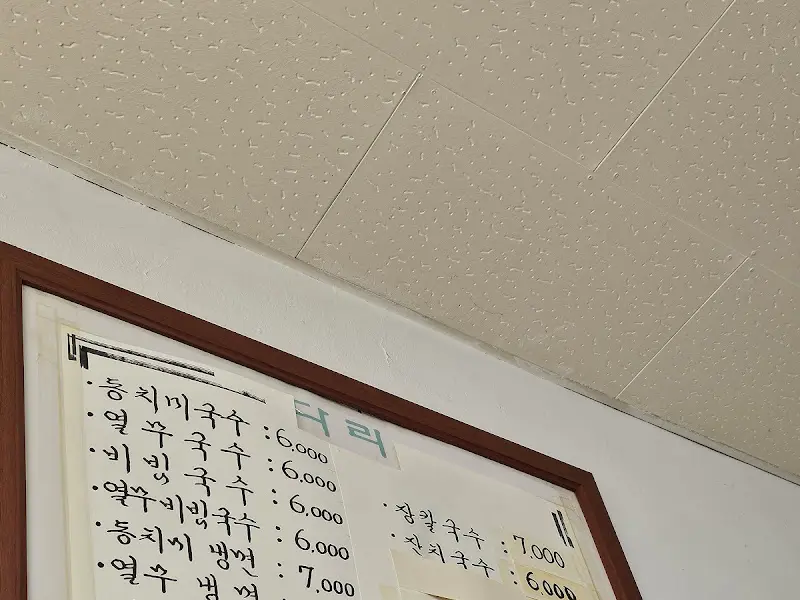 다리
·동치미국수 : 6,000
·열무국수 : 6,000
·비빔국수 : 6,000
·열무비빔국수 : 6,000
·동치미 냉면 : 7,000
·열무 냉면
·장칼국수 : 7,000
·잔치국수 : 6,000